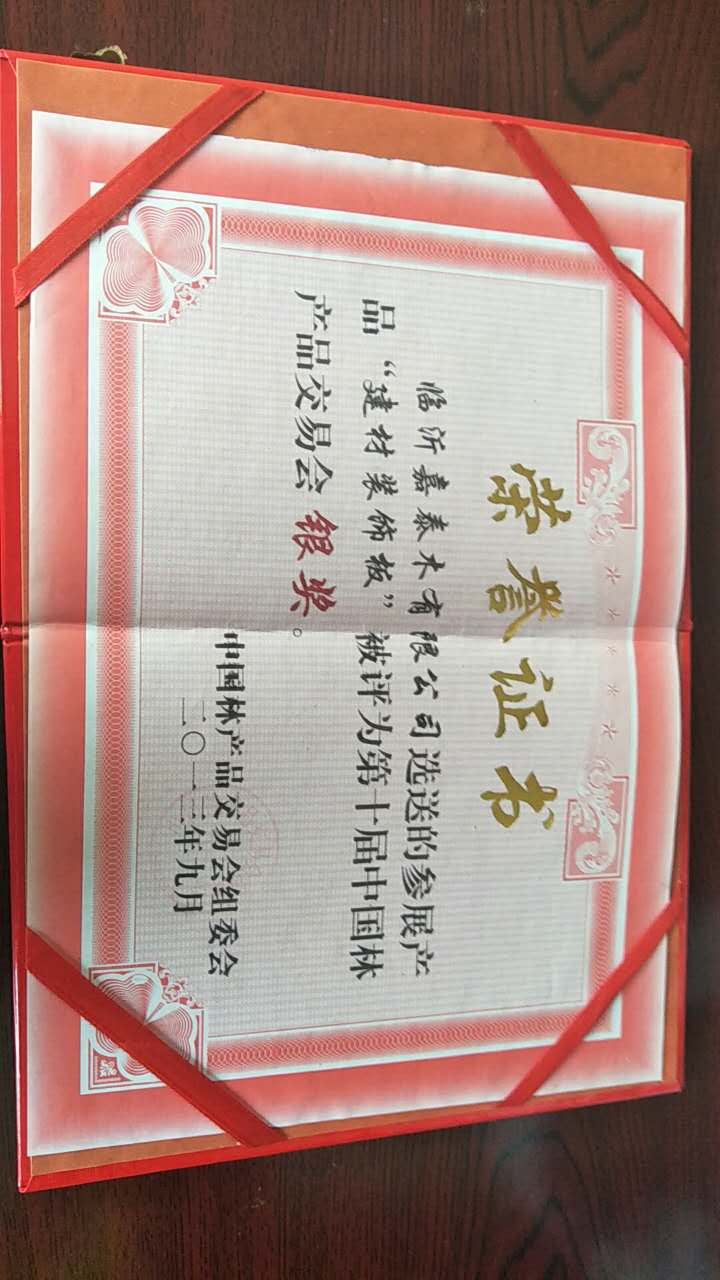 荣誉证书
临沂嘉泰木有限公司选送的参展产
品“建材装饰板”被评为第十届中国林
产品交易会银奖。
中国林产品交易会组委会
二〇一三年九月